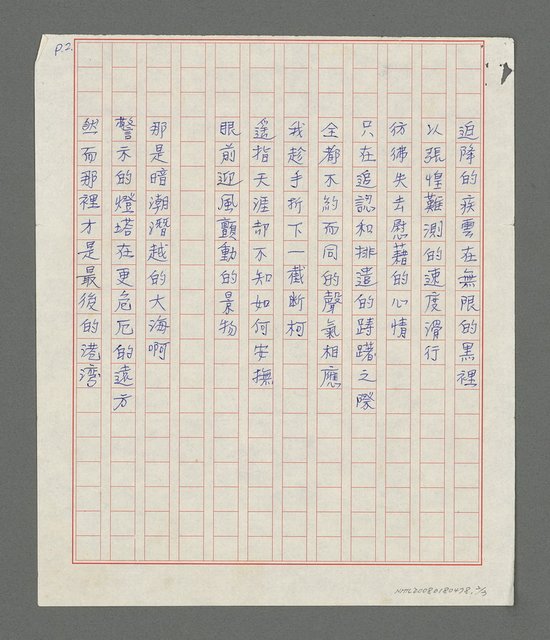 P.2.
迫降的疾雲在無限的黑裡
以張惶難測的速度滑行
彷彿失去慰藉的心情
只在追認和排遣的躊躇之際
全都不約而同的聲氣相應
我趁手折下一截斷柯
遙指天涯卻不知如何安撫
眼前迎風顫動的景物
那是暗潮潛越的大海啊
警示的燈塔在更危厄的遠方
然而那裡才是最後的港灣
NMTL20080180478. 2/3